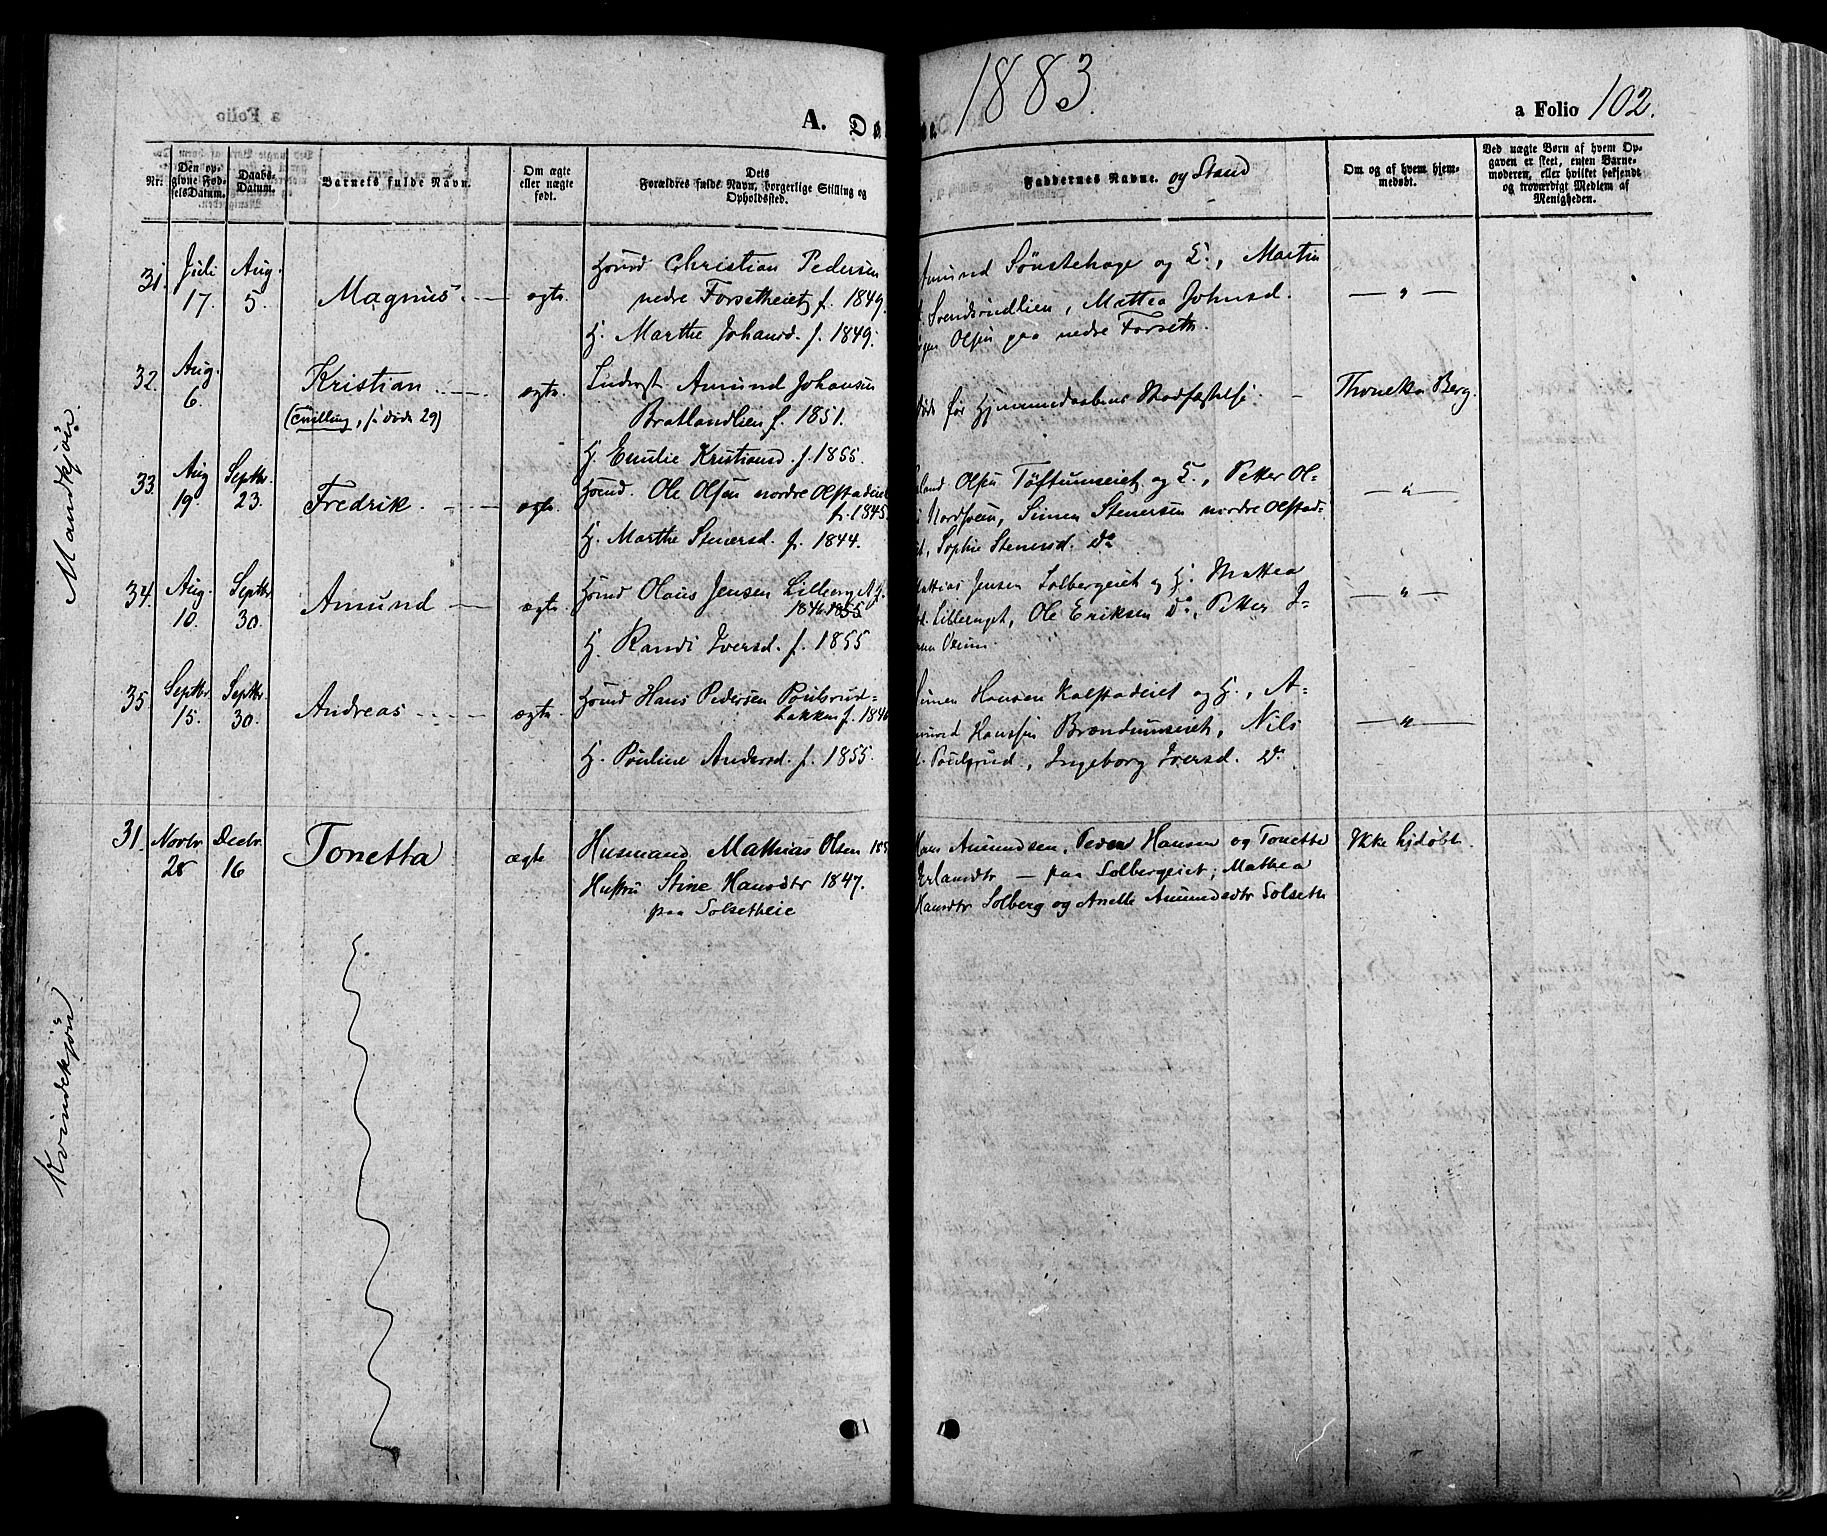 1883.
A. Dø
a Folio 102.
Nr.
Den op-
givne Fød-
selsDatum.
Daabs-
Datum.
Barnets fulde Navn.
Om ægte
eller uægte
født.
Dets
Forældres fulde Navn, borgerlige Stilling og
Opholdssted.
Faddernes Navne. og Stand
Om og af hvem hjem-
medøbt.
Ved uægte Børn af hvem Op-
gaven er skeet, enten Barne-
moderen, eller hvilket bekjendt
og troværdigt Medlem af
Menigheden.
Mandkjøn.
31. Juli 17. Aug. 5. Magnus. ægte. Christian Pedersen
nedre Forsetheiet f. 1849.
H. Marthe Johansd. f. 1849.
Amund Sønstehage og H., Martin
Svendsrudlien, Mattea Johnsd.
Olsen paa nedre Forseth.
32. Aug. 6. Kristian
(Tvilling, s. døde 29)
ægte. Amund Johansen
Bratlandlien f. 1851.
H. Emilie Kristiansd. f. 1855.
før Hjemmedaabens Stadfæstelse.
Thonetta Berg.
33. Aug 19. Septbr. 23. Fredrik. ægte. Hsmd. Ole Olsen nordre Olstadeiet
f. 1845.
H. Marthe Stenersd. f. 1844.
Olsen Tøftumseiet og H., Petter Ol-
Nordsveen, Simen Stenersen nordre Olstad-
Sophie Stenersd. Do
34. Aug. 10. Septbr 30. Amund ægte. Hsmd Hans Jensen
1846 1855
H. Randi Iversd. f. 1855
Mathias Jensen Solbergeiet og H. Mattea
Lilleenget, Ole Eriksen Do, Petter J-
35. Septbr. 15. Septbr. 30. Andreas ægte. Hsmd Hans Pedersen Poulsrud-
bakken f. 1846
H. Pouline Andersd. f. 1855.
Simen Hansen Kalstadeiet og H., A-
mund Hanssen Brændumseiet, Nils
Poulsrud, Ingeborg Iversd. Do
Kvindekjøn.
31. Novbr. 28 Decbr. 16 Tonetta ægte Husmand Mathias Olsen 185
Hustru Stine Hansdtr 1847.
paa Solsetheie
Hans Amundsen, Peder Hansen og Tonette
Erlandtr — paa Solbergeiet; Mathea
Hansdtr Solberg og Anette Amundsdtr Solseth
Ikke hjdøbt.